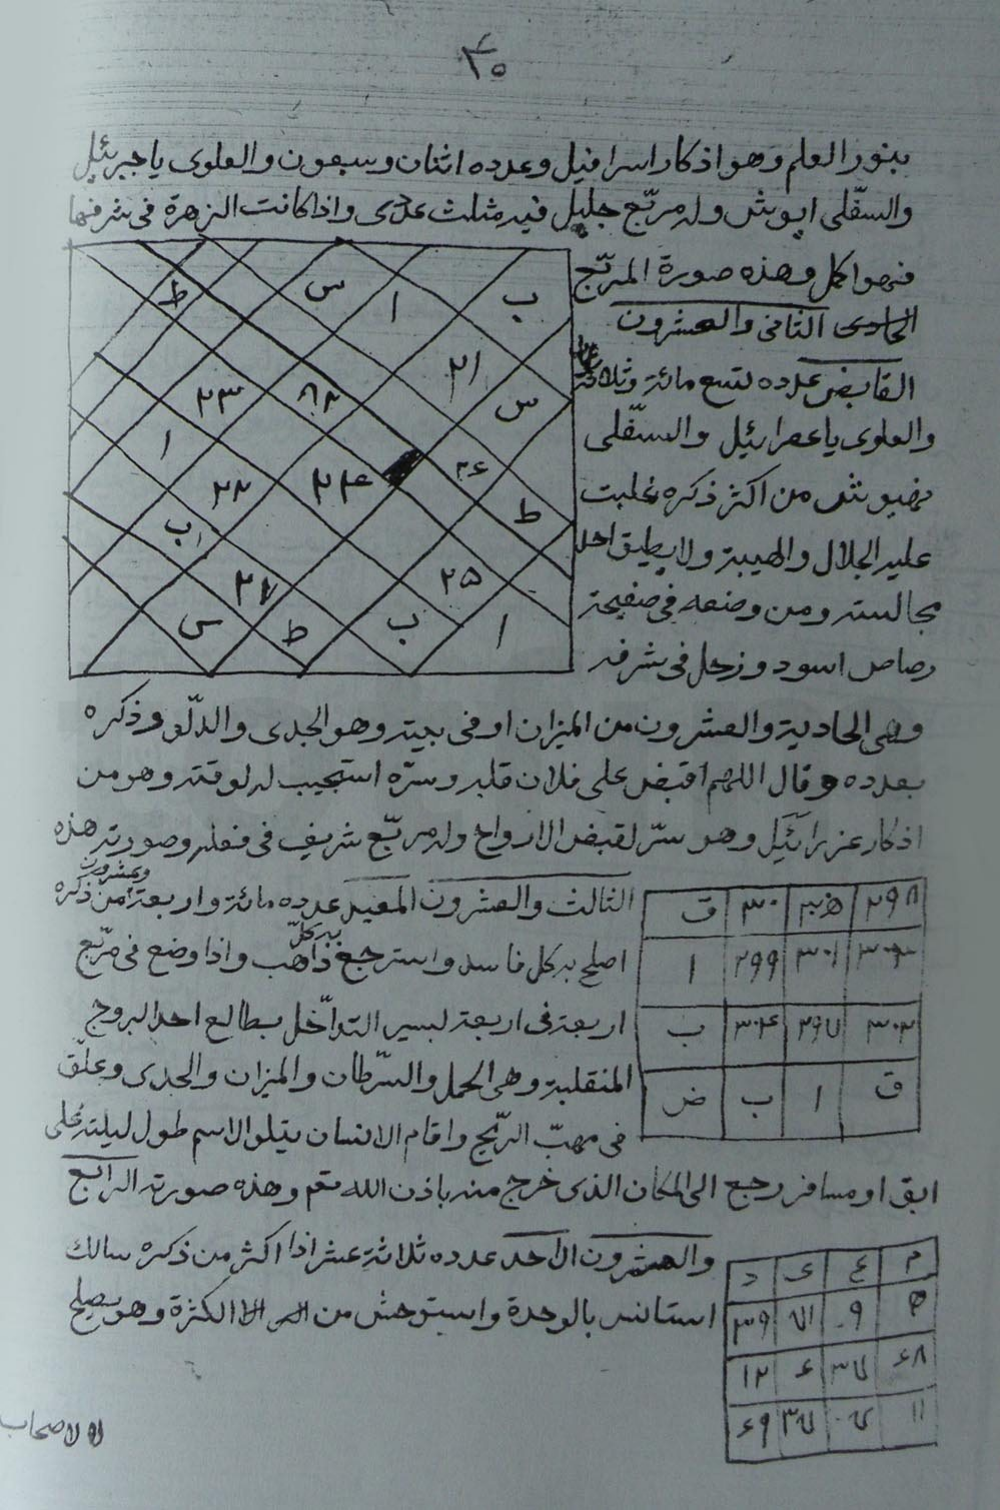 ٣٥
بنور العلم وهو اذكار اسرافيل وعدده اثنان وسبعون والعلوى ياجبرئيل
والسفّلى ايوش وله مربّع جليل فيه مثلث عددى واذا كانت الزهرة فى شرفها
فهو اكمل وهذه صورة المربّع
الثانى والعشرون
القابض عدده تسع مائة وثلاثة
والعلوى ياعصرائيل والسفّلى
من اكثر ذكره غلبت
عليه الجلال والهيبة ولا يطيق احد
مجالسته ومن وضعه فى صفيحة
رصاص اسود وزحل فى شرفه
ط س ا ب
٢٣ ٨٢ ٢١ س
ا ٢٢ ٢٤ ٢٦ ط
ب ٢٧ ٢٥
س ط ب ا
وهى الحادية والعشرون من الميزان او فى بيته وهو الجدى والدلّو وذكره
بعدده وقال اللهم اقبض على فلان قلبه وسرّه استجيب له لوقته وهو من
اذكار عزرائيل وهو سرّ لقبض الارواح وله مربّع شريف فى فعله وصورته هذه
الثالث والعشرون المعيد عدده مائة واربعة وعشرون من ذكره
اصلح به كل فاسد واسترجع به كلّ ذاهب واذا وضع فى مربّع
اربعة فى اربعة لسير التداخل بطالع احد البروج
المنقلبة وهى الحمل والسّرطان والميزان والجدى وعلّق
فى مهبّ الريّح واقام الانسان يتلو الاسم طول ليلته على
٢٩٨ ٣٠ ق
٣٠١ ٢٩٩ ا
٣٠٢ ٢٩٧ ٣٠٤ ب
ق ا ب ض
ابق او مسافر رجع الى المكان الذى خرج منه باذن الله تعم وهذه صورته الرابع
والعشرون الاحد عدده ثلاثة عشر اذا اكثر من ذكره سالك
استانس بالوحدة واستوحش من الكثرة وهو يصلح
م ع ى د
٩ ٧١ ٣٩
٦٨ ٣٧ ٤ ١٢
١١ ٣٧ ٦٩
لاصحاب